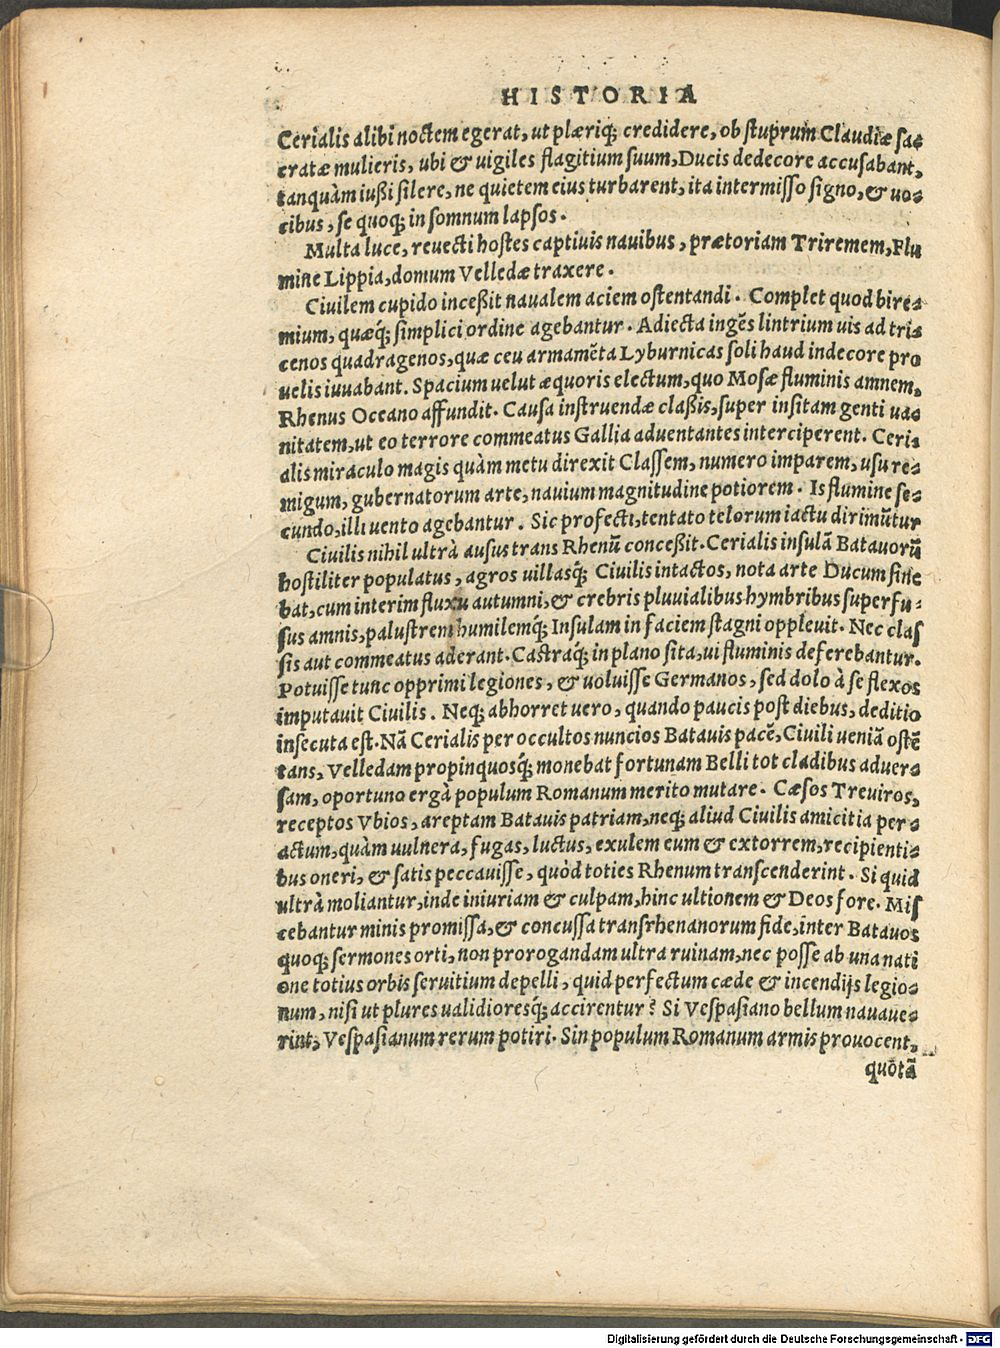 HISTORIA
Cerialis alibi noctem egerat, ut plæriq; credidere, ob stuprum Claudiæ sa-
cratæ mulieris, ubi & uigiles flagitium suum, Ducis dedecore accusabant,
tanquàm iußi silere, ne quietem eius turbarent, ita intermisso signo, & uo-
cibus, se quoq; in somnum lapsos.
Multa luce, reuecti hostes captiuis nauibus, prætoriam Triremem, Flu
mine Lippia, domum Velledæ traxere.
Ciuilem cupido inceßit naualem aciem ostentandi. Complet quod bire-
mium, quæq́; simplici ordine agebantur. Adiecta ingẽs lintrium uis ad tri-
cenos quadragenos, quæ ceu armamẽta Lyburnicas soli haud indecore pro
uelis iuuabant. Spacium uelut æquoris electum, quo Mosæ fluminis amnem,
Rhenus Oceano affundit. Causa instruendæ claßis, super insitam genti ua-
nitatem, ut eo terrore commeatus Gallia aduentantes interciperent. Ceri-
alis miraculo magis quàm metu direxit Classem, numero imparem, usu re-
migum, gubernatorum arte, nauium magnitudine potiorem. Is flumine se-
cundo, illi uento agebantur. Sic profecti, tentato telorum iactu dirimũtur
Ciuilis nihil ultrà ausus trans Rhenũ conceßit. Cerialis insulã Batauorũ
hostiliter populatus, agros uillasq́; Ciuilis intactos, nota arte Ducum sine
bat, cum interim fluxu autumni, & crebris pluuialibus hymbribus superfu-
sus amnis, palustrem humilemq́; Insulam in faciem stagni oppleuit. Nec clas
sis aut commeatus aderant. Castraq́; in plano sita, ui fluminis deferebantur.
Potuisse tunc opprimi legiones, & uoluisse Germanos, sed dolo à se flexos
imputauit Ciuilis. Neq; abhorret uero, quando paucis post diebus, deditio
insecuta est. Nã Cerialis per occultos nuncios Batauis pacẽ, Ciuili ueniã ostẽ
tans, Velledam propinquosq́; monebat fortunam Belli tot cladibus aduer-
sam, oportuno ergà populum Romanum merito mutare. Cæsos Treuiros,
receptos Vbios, areptam Batauis patriam, neq; aliud Ciuilis amicitia per-
actum, quàm uulnera, fugas, luctus, exulem eum & extorrem, recipienti-
bus oneri, & satis peccauisse, quòd toties Rhenum transcenderint. Si quid
ultrà moliantur, inde iniuriam & culpam, hinc ultionem & Deos fore. Mis
cebantur minis promissa, & concussa transrhenanorum fide, inter Batauos
quoq; sermones orti, non prorogandam ultra ruinam, nec posse ab una nati
one totius orbis seruitium depelli, quid perfectum cæde & incendijs legio-
num, nisi ut plures ualidioresq́; accirentur? Si Vespasiano bellum nauaue-
rint, Vespasianum rerum potiri. Sin populum Romanum armis prouocent,
quõtã
Digitalisierung gefördert durch die Deutsche Forschungsgemeinschaft - DFG